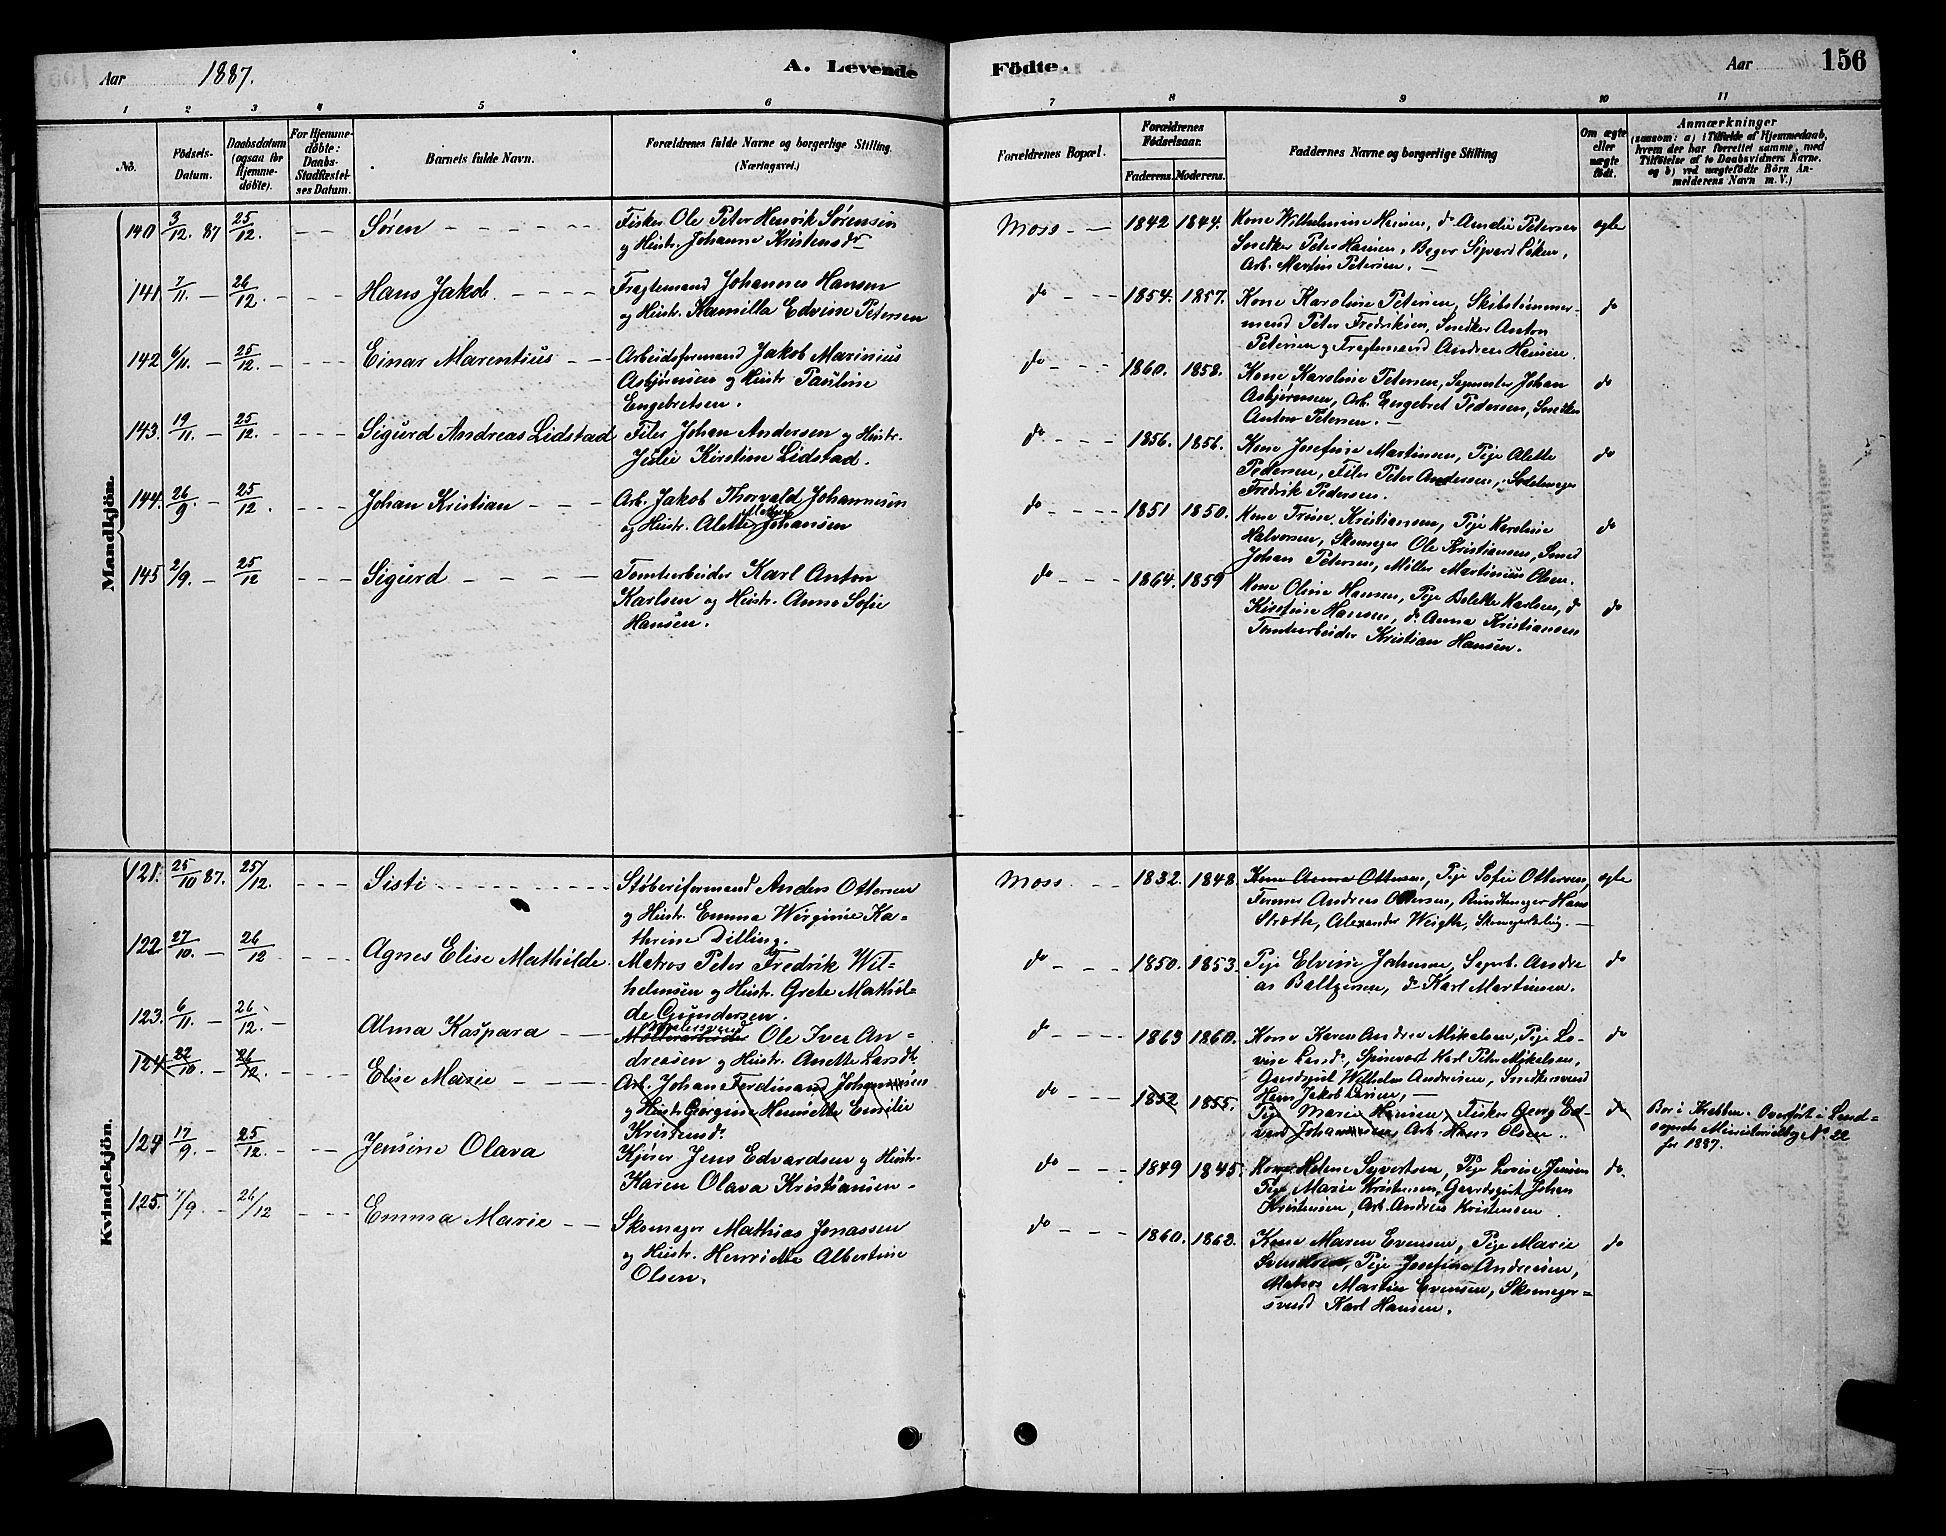 Aar 1887. A. Levende Födte. Aar 156
1 2 3 4 5 6 7 8 9 10 11
No. Födsels-Datum. Daabsdatum (ogsaa for Hjemme-döbte). For Hjemme-döbte: Daabs-Stadfæstel-ses Datum. Barnets fulde Navn. Forældrenes fulde Navne og borgerlige Stilling. (Næringsvei.) Forældrenes Bopæl. Forældrenes Födselsaar. Faderens. Moderens. Faddernes Navne og borgerlige Stilling Om ægte eller uægte födt. Anmærkninger (saasom: a) i Tilfælde af Hjemmedaab, hvem der har forrettet samme, med Tilföielse af to Daabsvidners Navne. og b) ved uægtefödte Börn An-melderens Navn m. V.)
Mandkjön.
140 3/12. 87 25/12. Søren Fisker Ole Peter Henrik Sørensen Moss 1842 1844. Kone Wilhelmine Hansen, do Amalie Petersen ægte
og Hustr. Johanne Kristensdr Snedker Peter Hansen, Bager Sigvard Löken,
Arb. Martin Petersen.
141. 7/11. 26/12. Hans Jakob Fragtemand Johannes Hansen do 1854. 1857. Kone Karoline Petersen, Skibstømmer- do
og Hustr. Kamilla Edvine Petersen mand Peter Fredriksen, Snedker Anton
Petersen og Fragtemand Andreas Hansen.
142 6/11. 25/12. Einar Marentius Arbeidsformand Jakob Marinius do 1860. 1858. Kone Karoline Petersen, Sagmester Johan do
Asbjörnsen og Hustr Pauline Asbjörnsen, Arb. Engebret Pedersen, Snedker
Engebretsen. Anton Petersen.
143. 19/11. 25/12. Sigurd Andreas Lidstad Filer Johan Andersen og Hustr. do 1856. 1856. Kone Josefine Martinsen, Pige Alette do
Julie Kirstine Lidstad. Pedersen, Filer Peter Andersen, Sadelmager
Fredrik Pedersen.
144. 26/9 25/12. Johan Kristian Arb. Jakob Thorvald Johannesen do 1851 1850. Kone Trine Kristiansen, Pige Karoline do
og Hustr. Alette Johansen Halvorsen, Skomager Ole Kristiansen, Smed
Johan Petersen, Möller Martinius Olsen.
145 2/9. 25/12 Sigurd Tomtearbeider Karl Anton do 1864. 1859 Kone Oline Hansen, Pige Bolette Karlsen, do do
Karlsen og Hustr. Anne Sofie Kirstine Hansen, do Anna Kristiansen
Hansen. Tomtearbeider Kristian Hansen.
Kvindekjön.
121. 25/10 87. 25/12. Sisti Støberiformand Anders Ottersen Moss 1832. 1848. Kone Anna Ottersen, Pige Sofie Ottersen, ægte
og Hustr. Emma Wirginie Ka- Former Andreas Ottersen, Hans
thrine Dilling. Stræth, Alexander Weigth,
122. 27/10. 26/12 Agnes Elise Mathilde. Matros Peter Fredrik Wil- do 1850. 1853. Pige Elvine Johnsen, Andre do
helmsen og Hustr. Grete Mathil- as Baltzersen, do Karl Martinsen.
de Gundersen.
123. 6/11. 26/12. Alma Kaspara Malersvend Møllerarbeider Ole Iver An- do 1863 1860. Kone Karen Andrea Mikalsen, Pige Lo- do
dreasen og Hustr. Anette Larsdr. vise Larsdr, Karl Peter Mikalsen,
Gaardsgut Wilhelm Andreasen, Snedkersvend
Hans Jakob Larsen,
124. 22/10. 26/12. Elise Marie Arb. Johan Ferdinand Johannesen do 1852 1855. Pige Marie Hansen, Fisker Georg Ed- do Bor i Krabben. Overført i Land-
og Hustr. Georgine Henriette Emilie vard Johannesen, Arb. Hans Olsen. sognets Ministerialbog No 22
Kristensdr. for 1887.
124 17/9. 25/12. Jensine Olava Kjører Jens Edvardsen og Hustr. do 1849 1845. Kone Helene Syvertsen, Pige Lovise Jensen do.
Karen Olava Kristiansen. Pige Marie Kristensen, Gaardsgut Johan
Kristensen, Arb. Andreas Kristensen
125. 7/9. 26/12 Emma Marie Skomager Mathias Jonassen do 1860. 1862. Kone Maren Evensen, Pige Marie do
og Hustr. Henriette Albertine Svendsen, Pige Josefine Andreasen,
Olsen. Matros Martin Evensen, Skomager-
svend Karl Hansen.